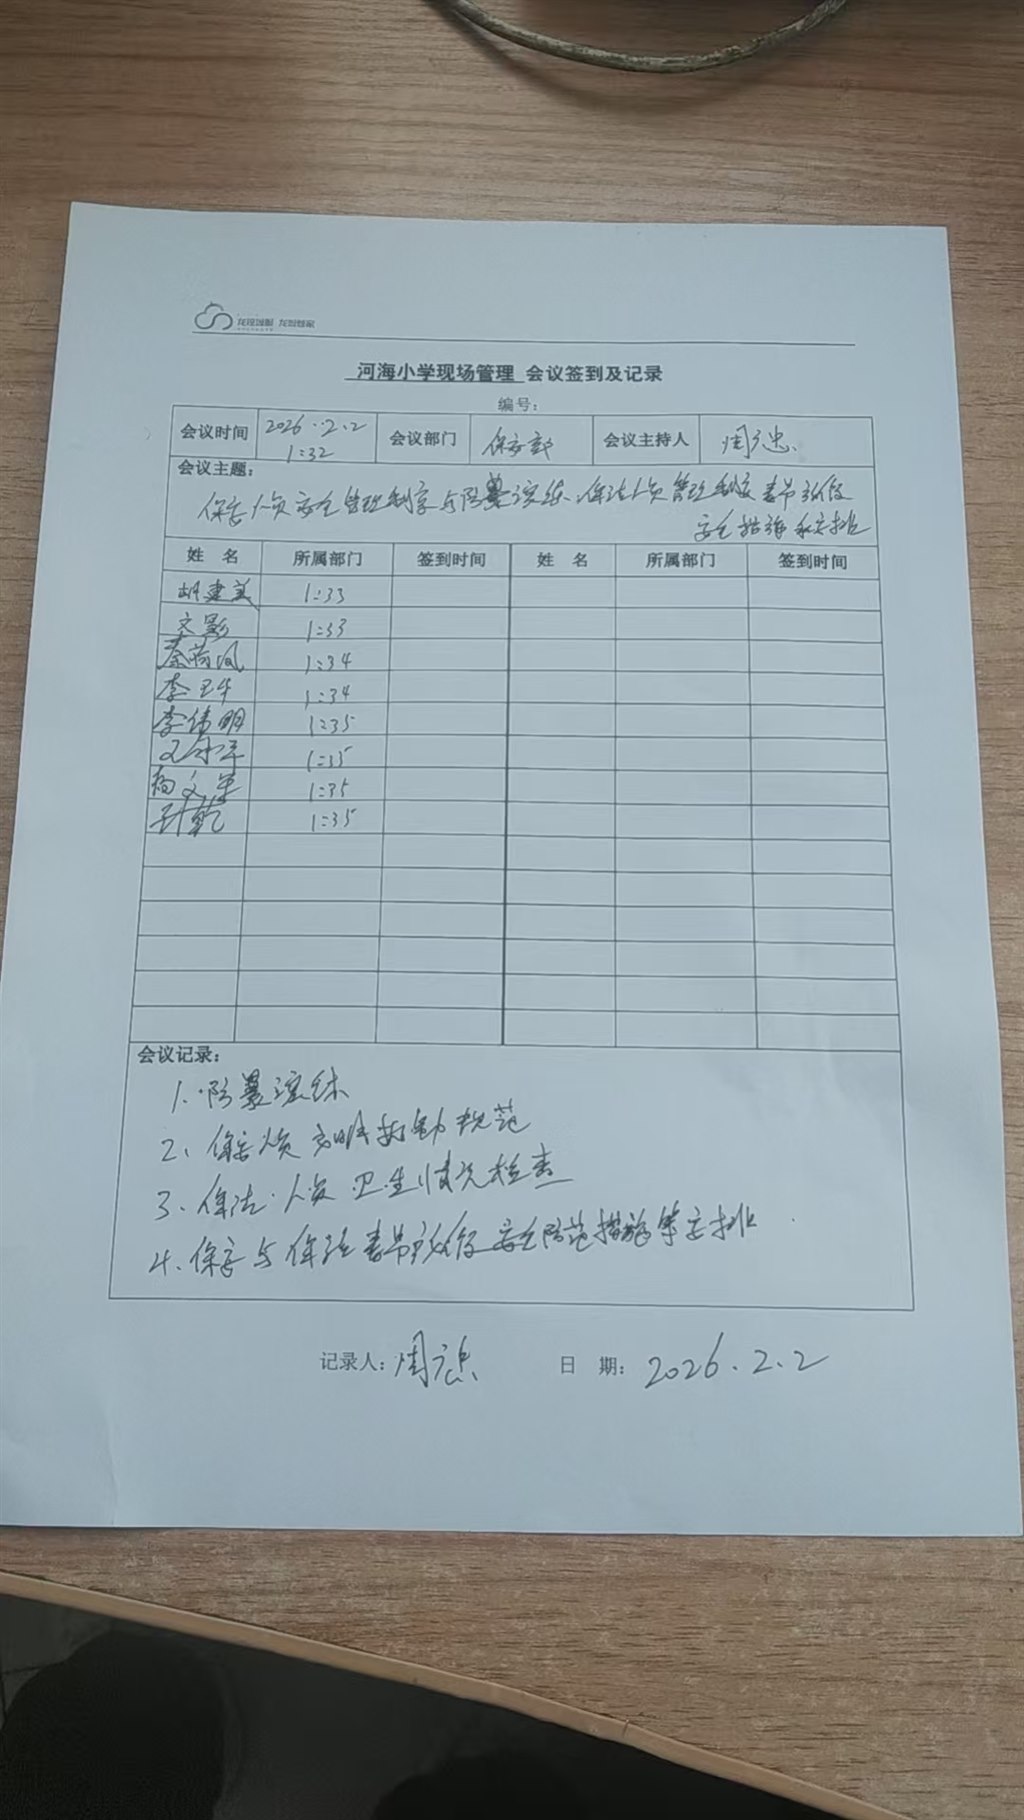 龙控城服 龙城管家
河海小学现场管理 会议签到及记录
编号：
会议时间 2026.2.2 1:32 会议部门 保安部 会议主持人 周忠
会议主题：
保安人员安全管理制度与防暴演练、保洁人员管理制度春节放假
安全措施和安排
姓 名 所属部门 签到时间 姓 名 所属部门 签到时间
胡建美 1:33
文彩 1:33
秦荷凤 1:34
李卫华 1:34
李伟明 1:35
1:35
杨文军 1:35
1:35
会议记录：
1、防暴演练
2、保安人员文明执勤规范
3、保洁人员卫生情况检查
4、保安与保洁春节放假安全防范措施等安排
记录人：周忠 日 期：2026.2.2